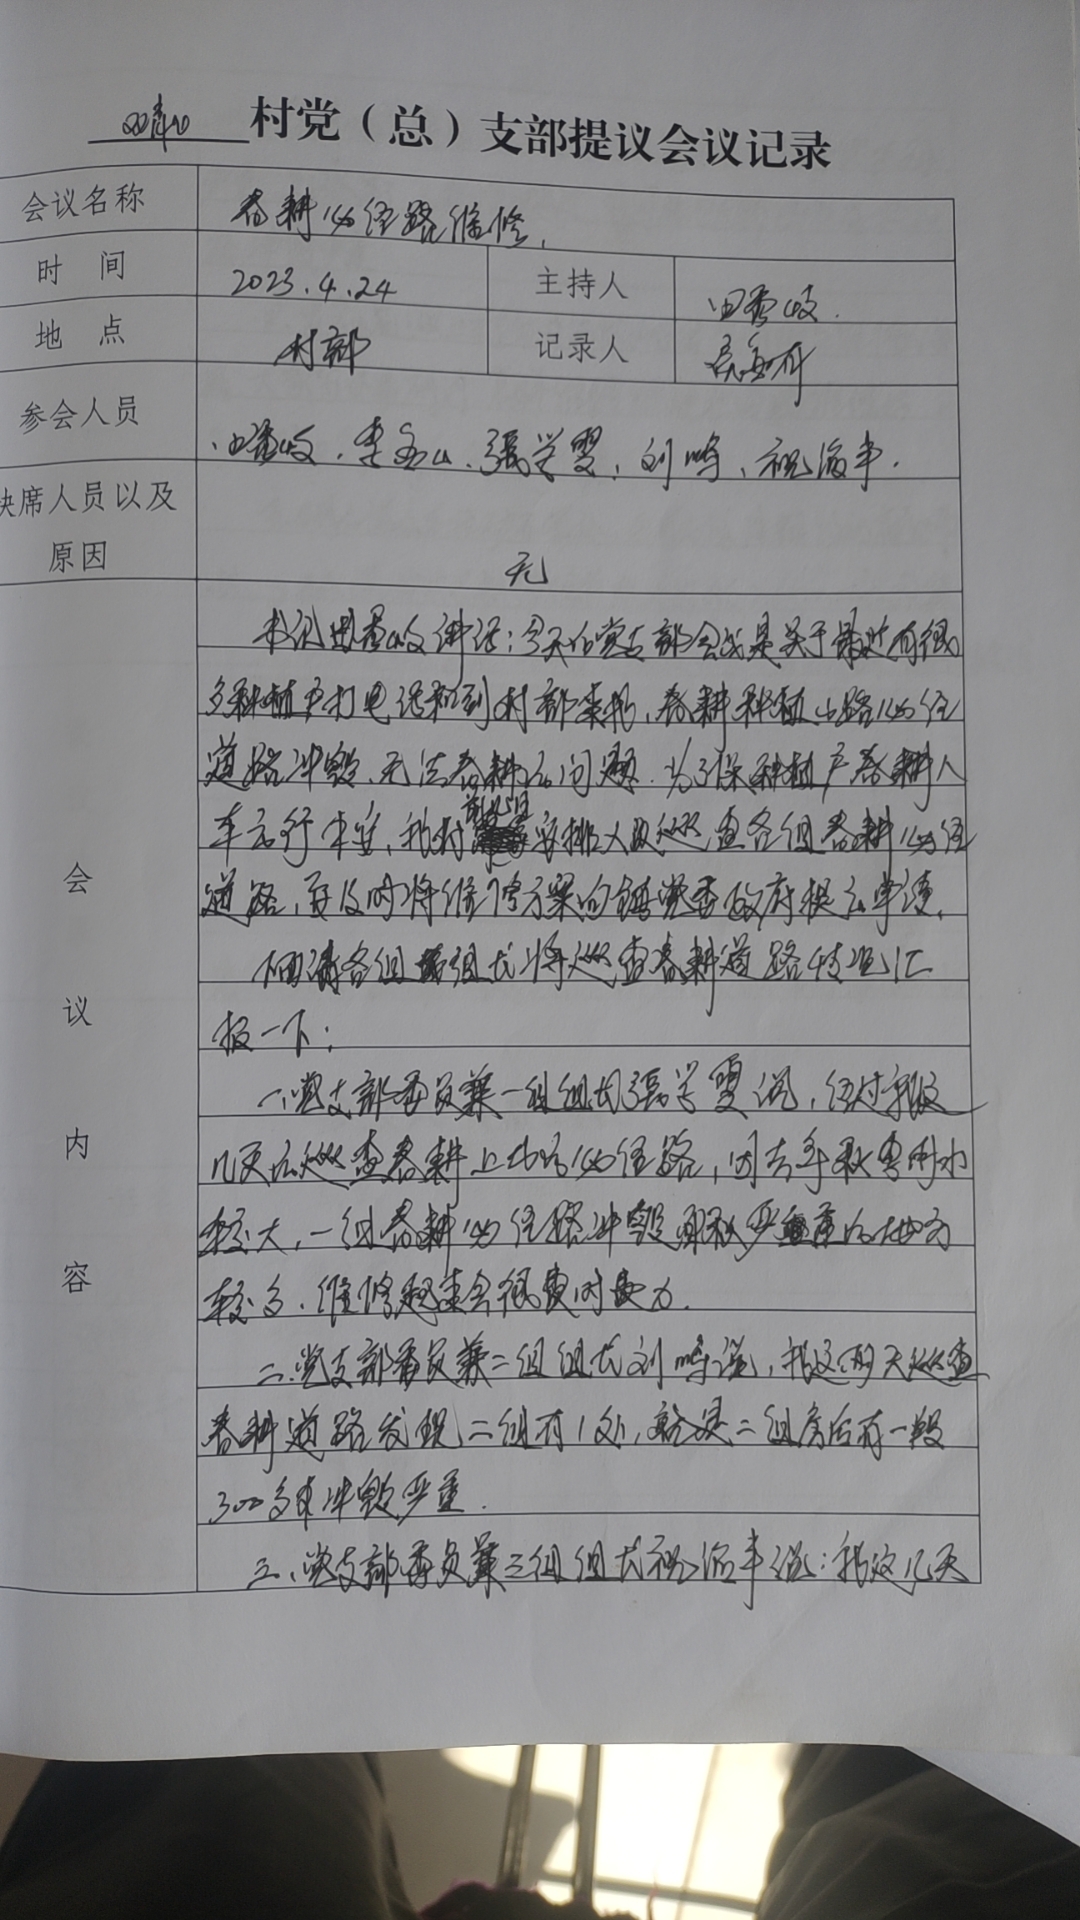 村党（总）支部提议会议记录
会议名称 春耕必经路维修.
时 间 2023.4.24 主持人 田秀岐.
地 点 村部 记录人
参会人员 田秀岐.李.张学雯,刘鸣,祝海丰.
缺席人员以及
原因 无
会议内容
书记田秀岐讲话:今天的党支部会议是关于最近有很
多种植户打电话和到村部来找,春耕种植山路必经
道路冲毁,无法春耕的问题.为了保种植户春耕人
车行安,我村前几日安排人员巡查各组春耕必经
道路,及时将维修方案向镇党委政府提出申请.
请各组组长将巡查春耕道路情况汇
报一下:
一.党支部委员兼一组组长张学雯说,经过我这
几天的巡查春耕上地的必经路,因去年秋季雨水
较大,一组春耕必经路冲毁严重的地方
较多.维修起来会很费时费力.
二.党支部委员兼二组组长刘鸣说,我这两天巡查
春耕道路发现二组有1处,就是二组房后有一段
300多米冲毁严重.
三.党支部委员兼三组组长祝海丰说:我这几天